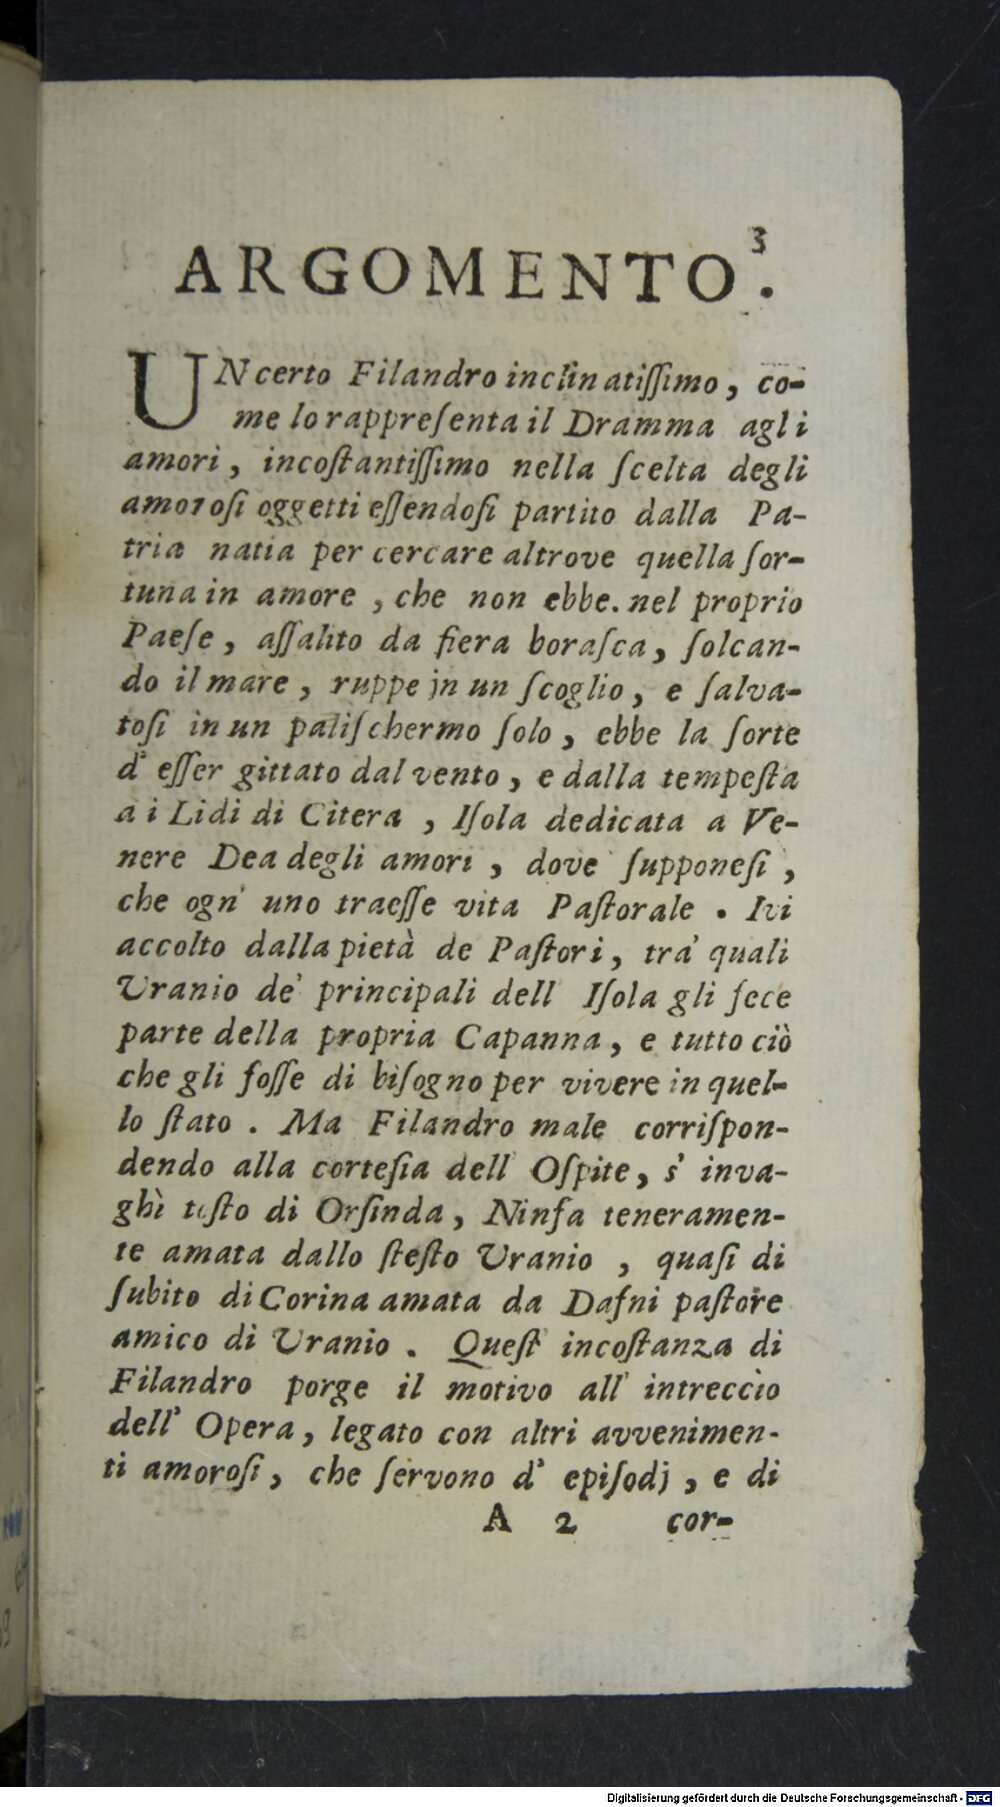 3
ARGOMENTO.
UN certo Filandro inclinatiſſimo, co-
me lo rappreſenta il Dramma agli
amori, incoſtantiſſimo nella ſcelta degli
amoroſi oggetti eſſendoſi partito dalla Pa-
tria natia per cercare altrove quella for-
tuna in amore, che non ebbe. nel proprio
Paeſe, aſſalito da fiera boraſca, ſolcan-
do il mare, ruppe in un ſcoglio, e ſalva-
toſi in un paliſchermo ſolo, ebbe la ſorte
d' eſſer gittato dal vento, e dalla tempeſta
a i Lidi di Citera, Iſola dedicata a Ve-
nere Dea degli amori, dove ſupponeſi,
che ogn' uno traeſſe vita Paſtorale. Ivi
accolto dalla pietà de Paſtori, tra' quali
Uranio de' principali dell Iſola gli fece
parte della propria Capanna, e tutto ciò
che gli foſſe di biſogno per vivere in quel-
lo ſtato. Ma Filandro male corriſpon-
dendo alla corteſia dell' Oſpite, s' inva-
ghì teſto di Orſinda, Ninfa teneramen-
te amata dallo ſteſto Uranio, quaſi di
ſubito di Corina amata da Dafni paſtore
amico di Uranio. Queſt' incoſtanza di
Filandro porge il motivo all' intreccio
dell' Opera, legato con altri avvenimen-
ti amoroſi, che ſervono d' epiſodj, e di
A 2 cor-
Digitalisierung gefördert durch die Deutsche Forschungsgemeinschaft - DFG